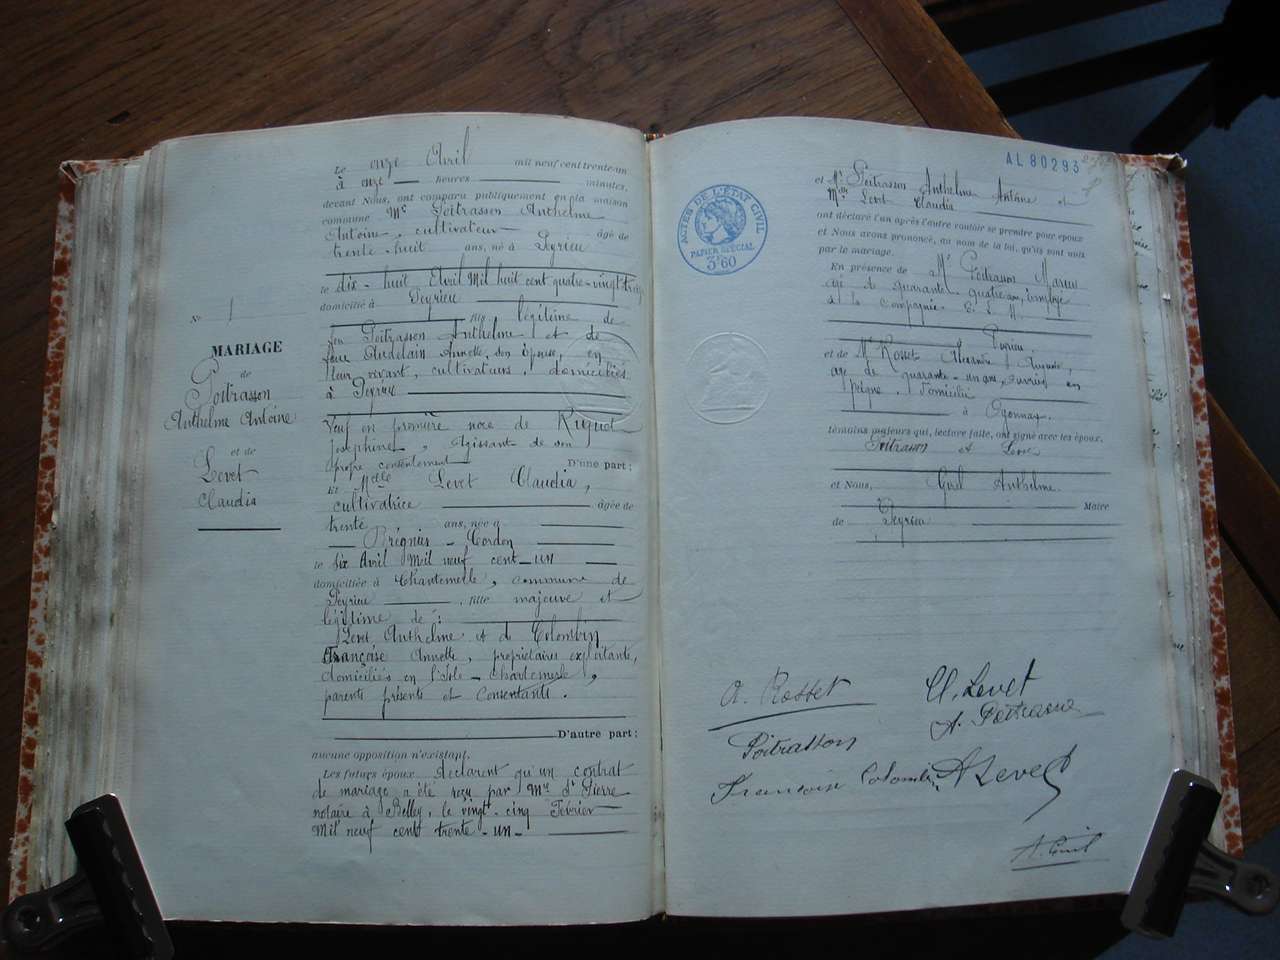 N° 1
MARIAGE
de
Poitrasson
Anthelme Antoine
et de
Levet
Claudia
Le onze Avril mil neuf cent trente-un
à onze heures minutes,
devant Nous, ont comparu publiquement en la maison
commune Mr Poitrasson Anthelme
Antoine, cultivateur âgé de
trente-huit ans, né à Peyrieu
le dix-huit Avril Mil huit cent quatre-vingt treize
domicilié à Peyrieu
fils légitime de
feu Poitrasson Anthelme et de
feue Audelain Annette, son épouse, en
leur vivant, cultivateurs, domiciliés
à Peyrieu
Veuf en première noce de
Joséphine, Agissant de son
propre consentement D'une part;
Et Melle Levet Claudia,
cultivatrice âgée de
trente ans, née à
Brégnier-Cordon
le six Avril Mil neuf cent-un
domiciliée à Chantemelle, commune de
Peyrieu, fille majeure et
légitime de:
Levet Anthelme et de Colombin
Françoise Annette, propriétaires exploitants,
domiciliés en l'Isle-Chantemerle,
parents présents et Consentants.
D'autre part;
aucune opposition n'existant.
Les futurs époux déclarent qu'un contrat
de mariage a été reçu par Me d'Pierre
notaire à Belley, le vingt-cinq Février
Mil neuf cent trente-un-
AL 80293
ACTES DE L'ÉTAT CIVIL
PAPIER SPÉCIAL
3F60
et Mr Poitrasson Anthelme Antoine et
Mlle Levet Claudia
ont déclaré l'un après l'autre vouloir se prendre pour époux
et Nous avons prononcé, au nom de la loi, qu'ils sont unis
par le mariage.
En présence de Mr Poitrasson Marius
âgé de quarante-quatre ans, Employé
à la Compagnie P. L. M.
Peyrieu
et de Mr Rosset Alexandre Auguste,
âgé de quarante-un ans, ouvrier en
peigne, domicilié
à Oyonnax,
témoins majeurs qui, lecture faite, ont signé avec les époux.
Poitrasson et Levet
et Nous, Girel Anthelme
Maire
de Peyrieu
A. Rosset
Cl. Levet
A. Poitrasson
Poitrasson
Francoise Colombin
A Levet
A. Girel